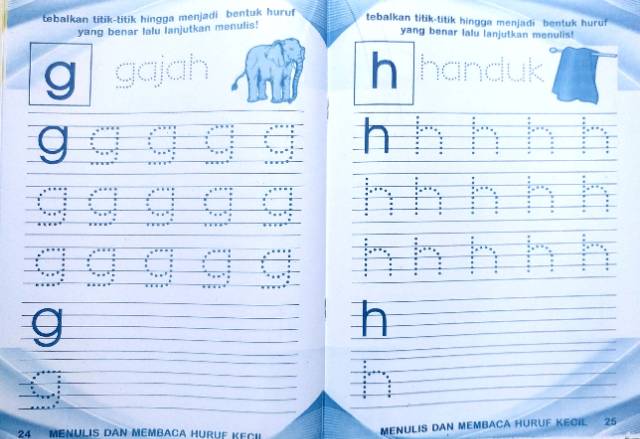 tebalkan titik-titik hingga menjadi bentuk huruf
yang benar lalu lanjutkan menulis!
g gajah
g g g g g
g g g g g
g g g g g
g
g
24 MENULIS DAN MEMBACA HURUF KECIL
tebalkan titik-titik hingga menjadi bentuk huruf
yang benar lalu lanjutkan menulis!
h handuk
h h h h h
h h h h h
h h h h h
h
h
MENULIS DAN MEMBACA HURUF KECIL 25